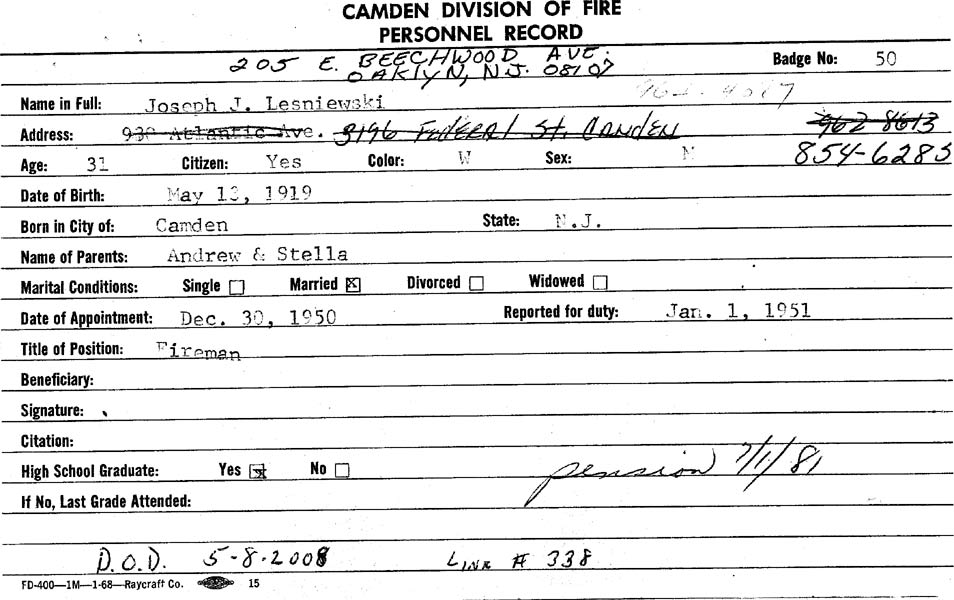 CAMDEN DIVISION OF FIRE
PERSONNEL RECORD
205 E. BEECHWOOD AVE.
OAKLYN, N.J. 08107
Badge No: 50
Name in Full: Joseph J. Lesniewski
Address: 930 Atlantic Ave. 3196 FEDERAL St. CAMDEN 962 8613
Age: 31 Citizen: Yes Color: W Sex: M 854-6285
Date of Birth: May 13, 1919
Born in City of: Camden State: N.J.
Name of Parents: Andrew & Stella
Marital Conditions: Single Married Divorced Widowed
Date of Appointment: Dec. 30, 1950 Reported for duty: Jan. 1, 1951
Title of Position: Fireman
Beneficiary:
Signature:
Citation:
High School Graduate: Yes No pension 7/1/81
If No, Last Grade Attended:
D.O.D. 5-8-2008 LINE # 338
FD-400—1M—1-68—Raycraft Co. 15